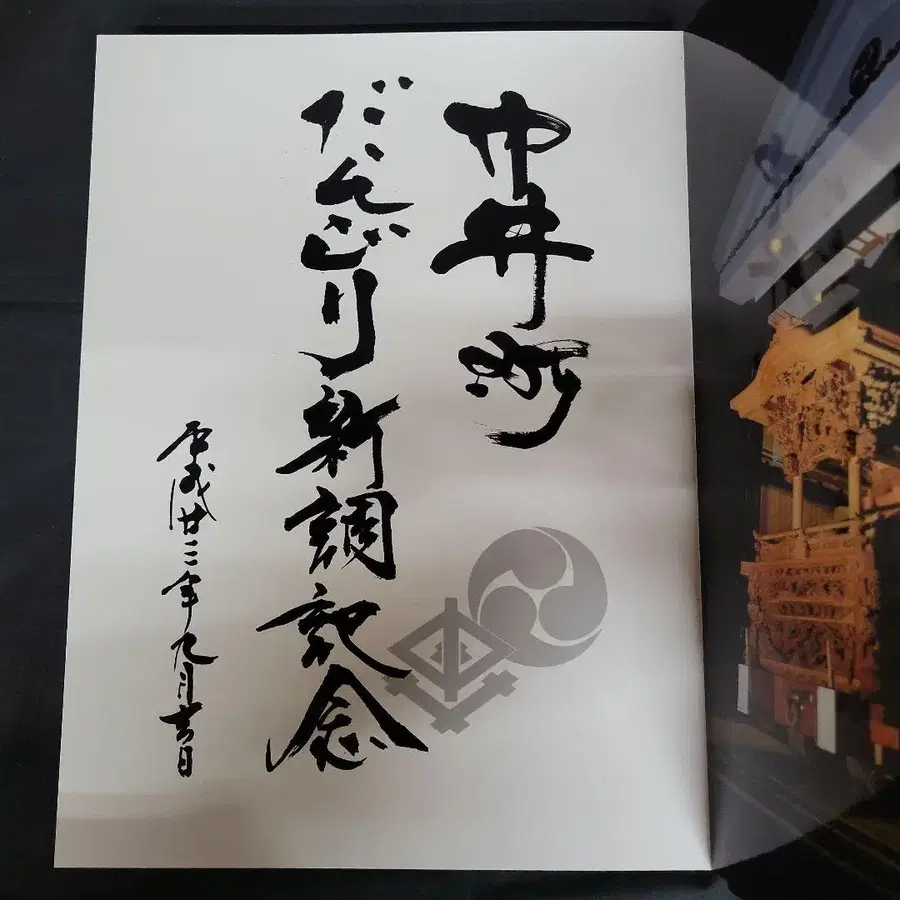 中井町
だんじり新調記念
平成廿二年九月吉日